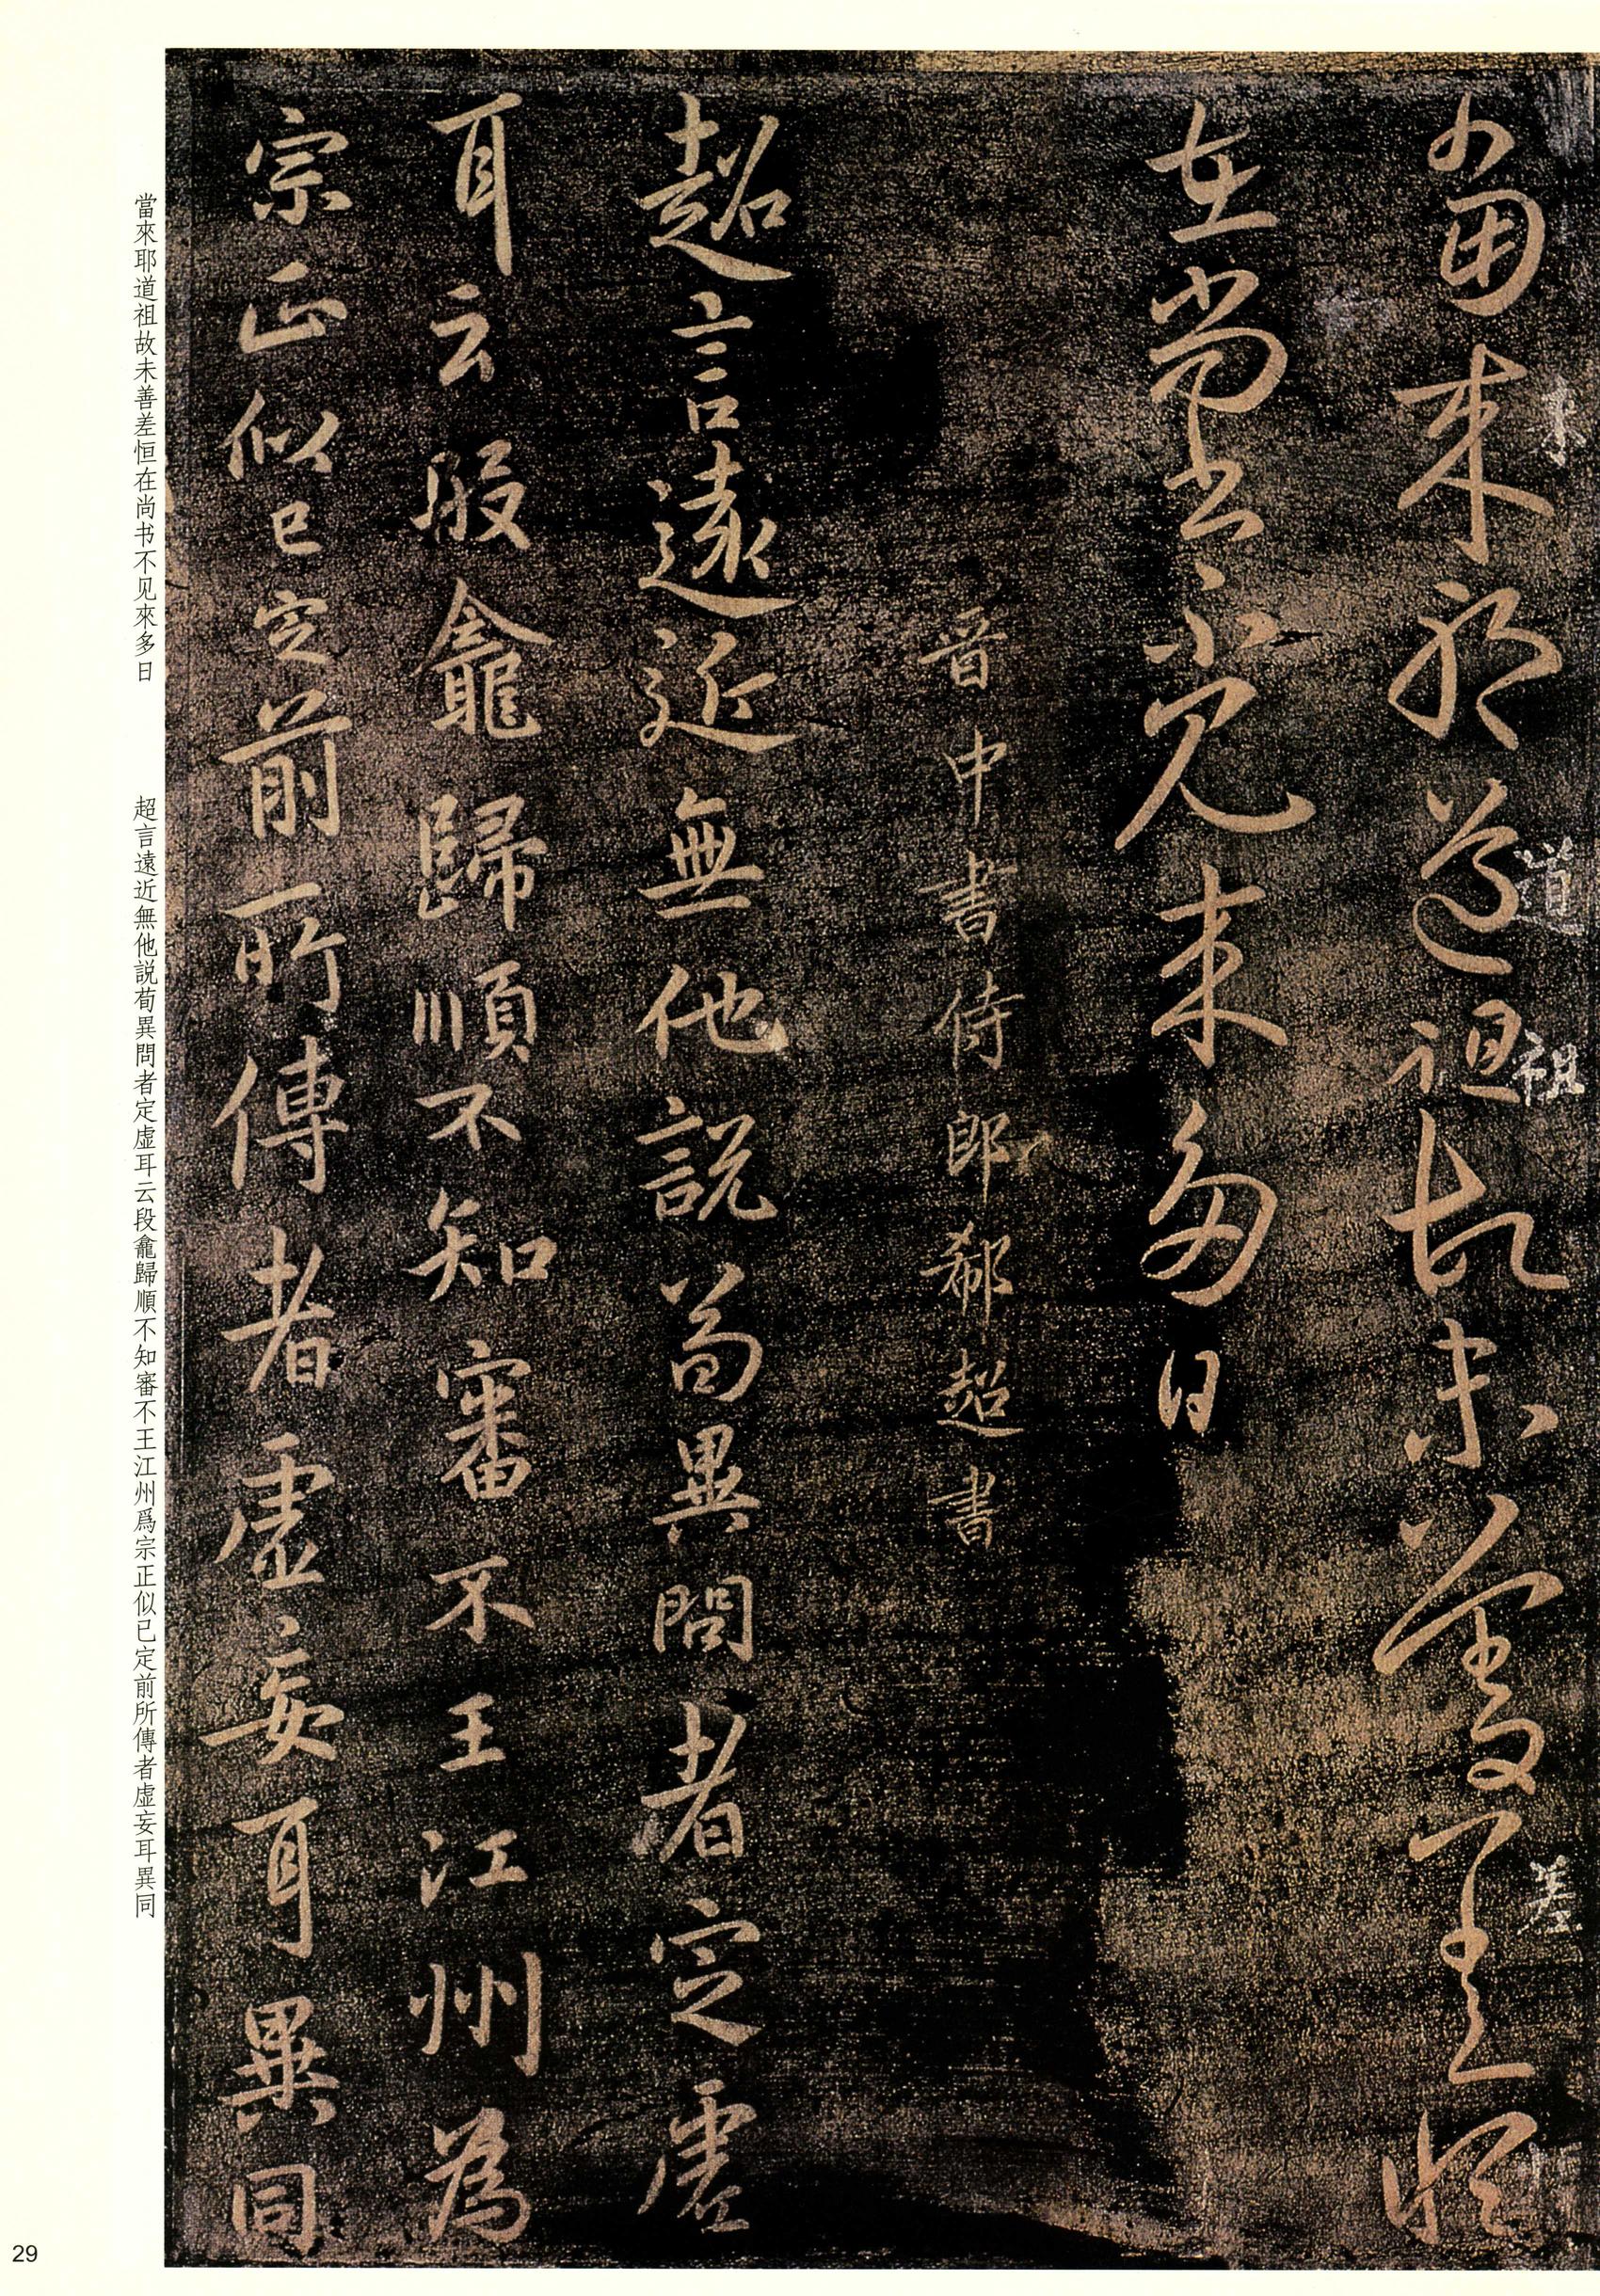 當來耶道祖故未善差恒
在尚书不見來多日
來
道
祖
差
晋中書侍郎郗超書
超言遠近無他說荀異問者定虛
耳云段龕歸順不知審不王江州為
宗正似已定前所傳者虛妄耳異同
當來耶道祖故未善差恒在尚书不见來多日
超言遠近無他説荀異問者定虛耳云段龕歸順不知審不王江州爲宗正似已定前所傳者虛妄耳異同
29